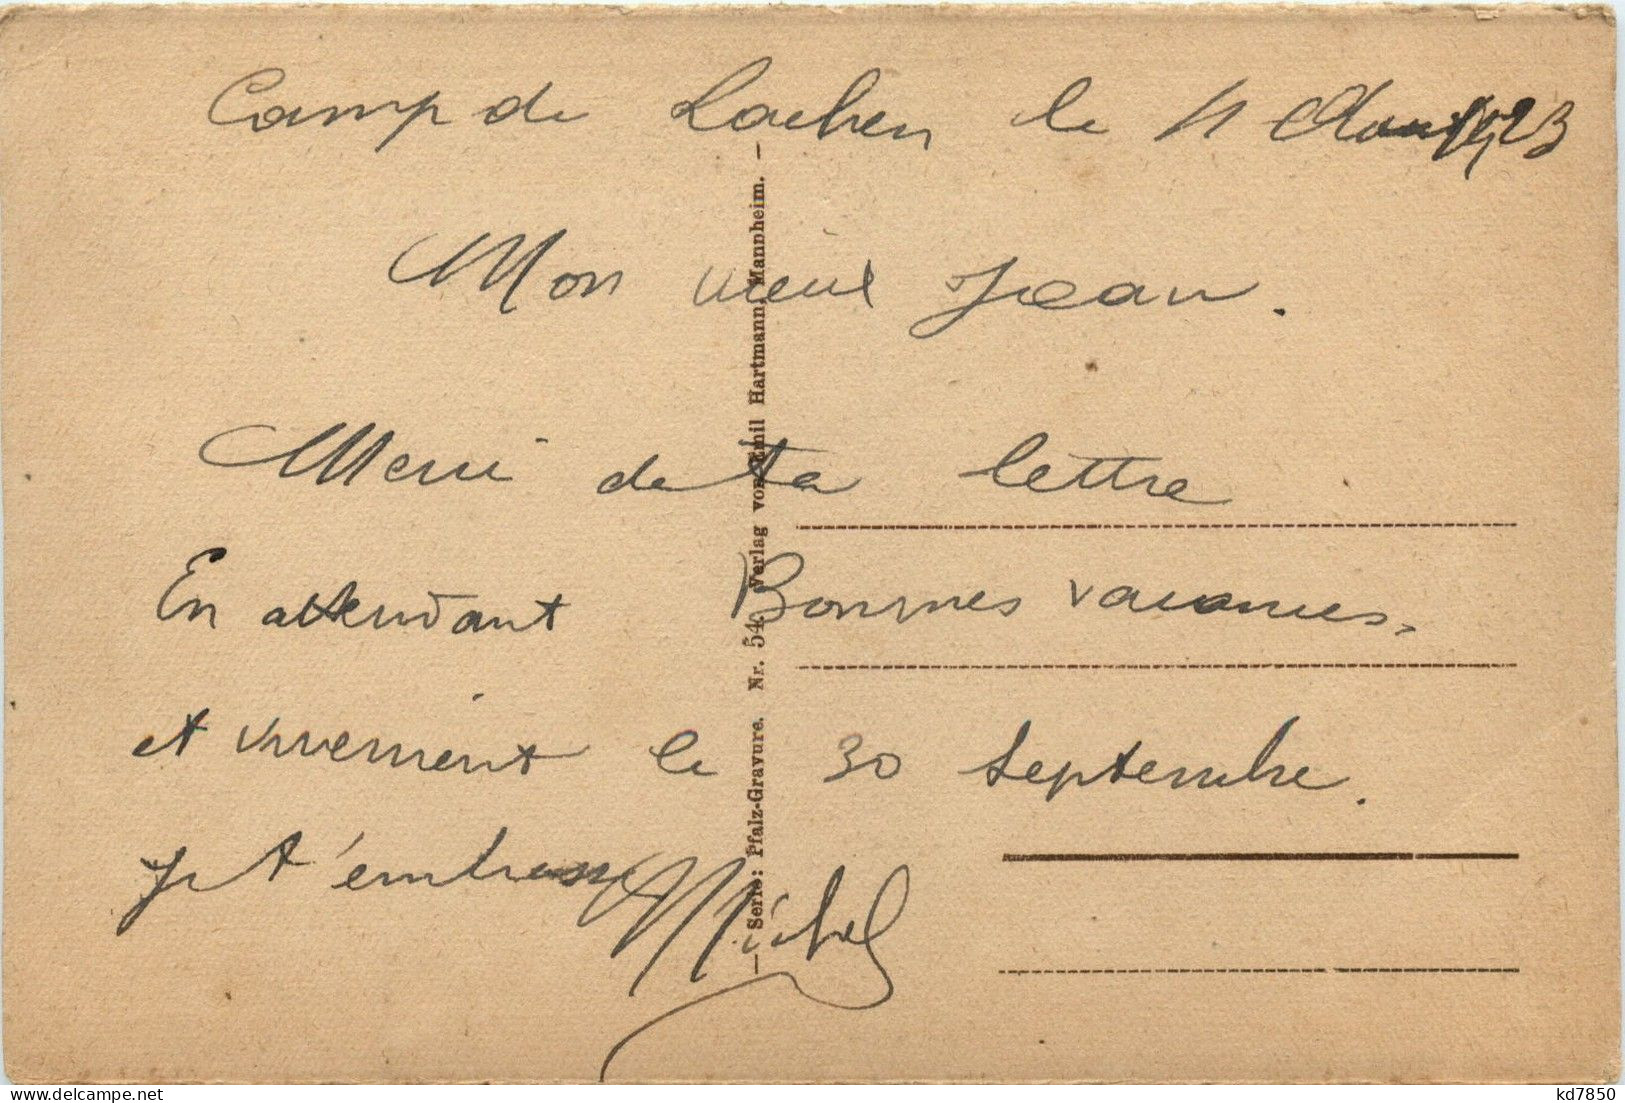 Camp de Lachen le 11 Août 1923
Mon vieux Jean.
Merci de ta lettre
En attendant Bonnes vacances,
et vivement le 30 Septembre.
Je t'embrasse Michel
— Serie: Pfalz-Gravure. Nr. 54. Verlag von Emil Hartmann, Mannheim. —
kd7850